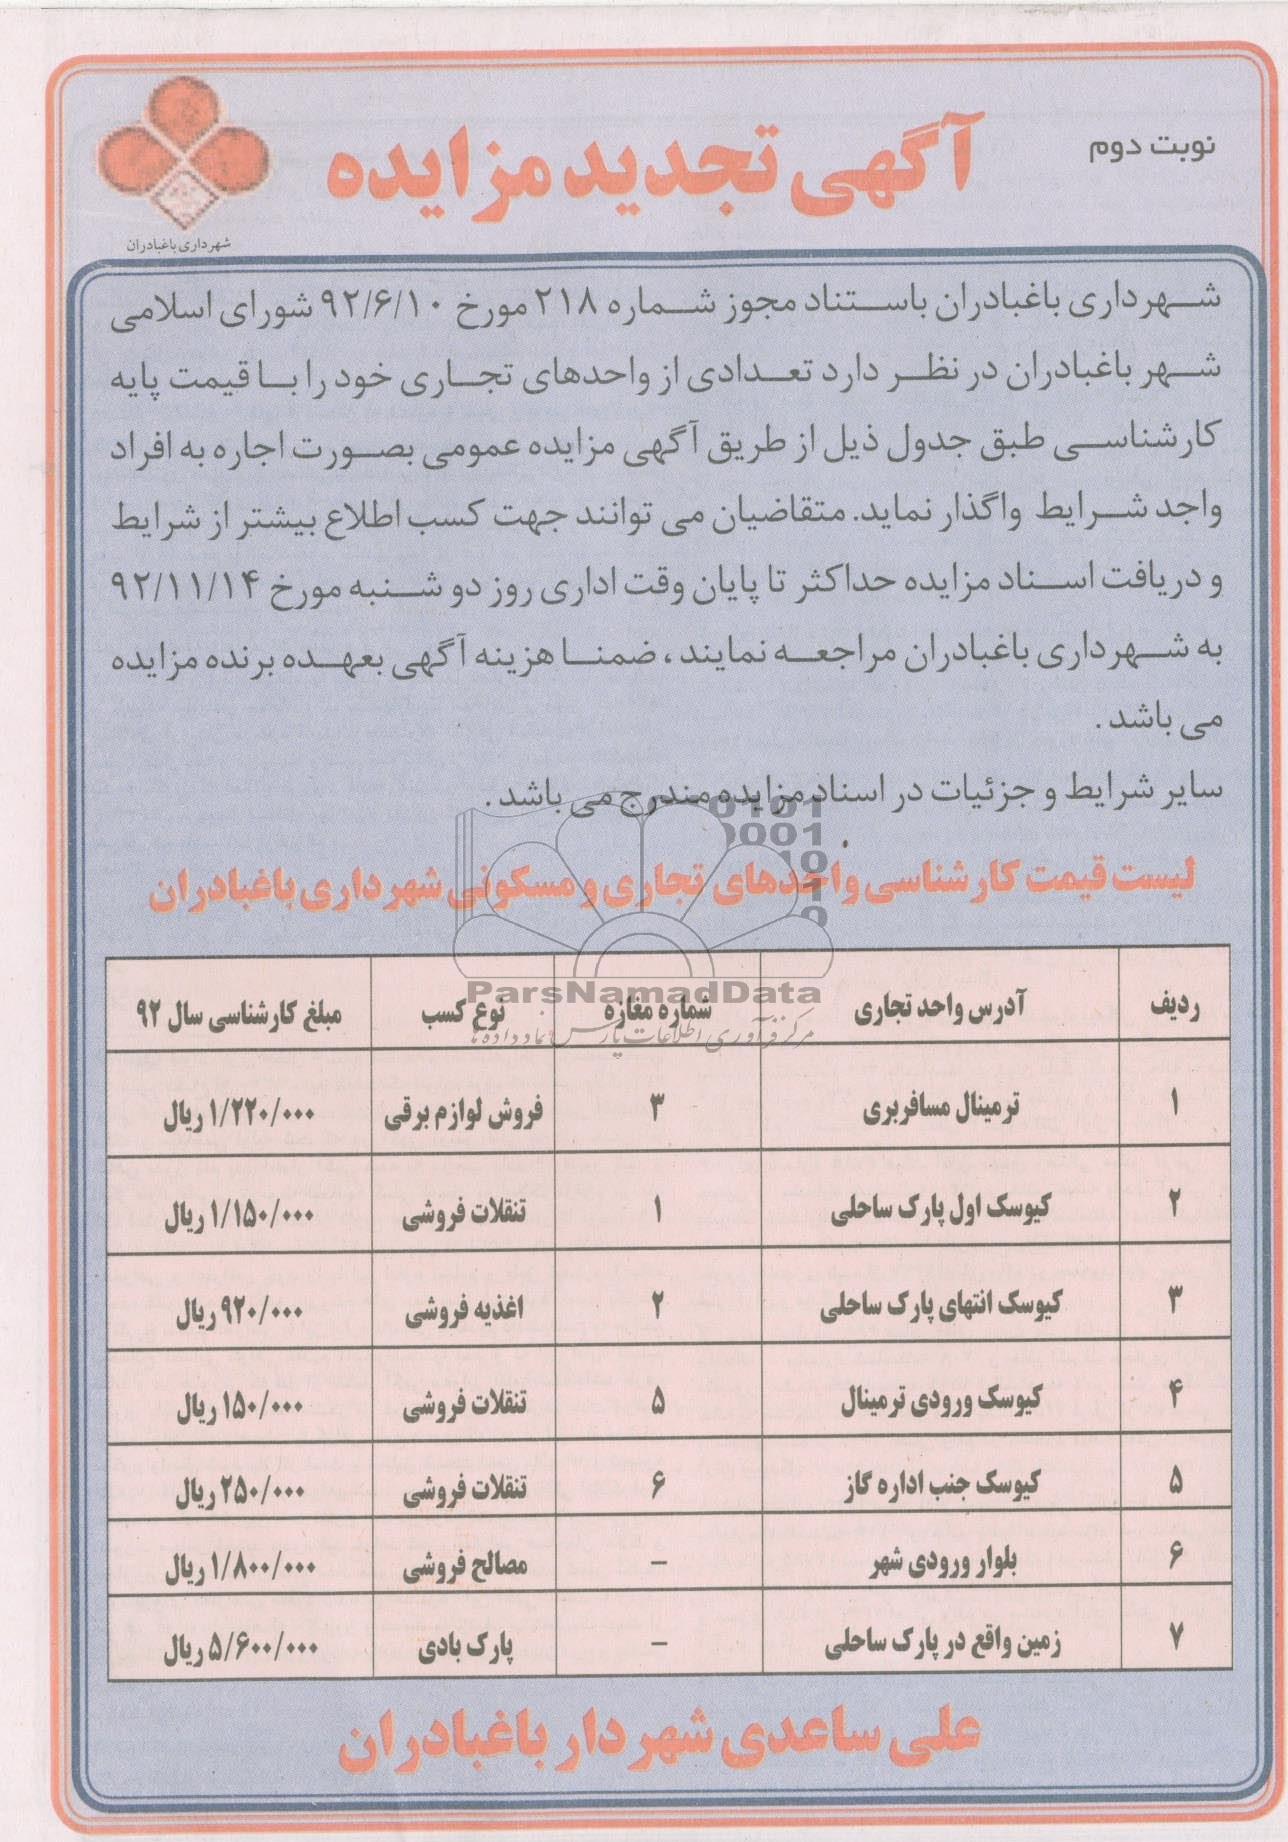 نوبت دوم
آگهی تجدید مزایده
شهرداری باغبادران
شهرداری باغبادران باستناد مجوز شماره ۲۱۸ مورخ ۹۲/۶/۱۰ شورای اسلامی
شهر باغبادران در نظر دارد تعدادی از واحدهای تجاری خود را با قیمت پایه
کارشناسی طبق جدول ذیل از طریق آگهی مزایده عمومی بصورت اجاره به افراد
واجد شرایط واگذار نماید. متقاضیان می توانند جهت کسب اطلاع بیشتر از شرایط
و دریافت اسناد مزایده حداکثر تا پایان وقت اداری روز دو شنبه مورخ ۹۲/۱۱/۱۴
به شهرداری باغبادران مراجعه نمایند ، ضمنا هزینه آگهی بعهده برنده مزایده
می باشد .
سایر شرایط و جزئیات در اسناد مزایده مندرج می باشد .
لیست قیمت کارشناسی واحدهای تجاری و مسکونی شهرداری باغبادران
ردیف آدرس واحد تجاری شماره مغازه نوع کسب مبلغ کارشناسی سال ۹۲
۱ ترمینال مسافربری ۳ فروش لوازم برقی ۱/۲۲۰/۰۰۰ ریال
۲ کیوسک اول پارک ساحلی ۱ تنقلات فروشی ۱/۱۵۰/۰۰۰ ریال
۳ کیوسک انتهای پارک ساحلی ۲ اغذیه فروشی ۹۲۰/۰۰۰ ریال
۴ کیوسک ورودی ترمینال ۵ تنقلات فروشی ۱۵۰/۰۰۰ ریال
۵ کیوسک جنب اداره گاز ۶ تنقلات فروشی ۲۵۰/۰۰۰ ریال
۶ بلوار ورودی شهر – مصالح فروشی ۱/۸۰۰/۰۰۰ ریال
۷ زمین واقع در پارک ساحلی – پارک بادی ۵/۶۰۰/۰۰۰ ریال
علی ساعدی شهردار باغبادران
ParsNamadData
مرکز فرآوری اطلاعات پارس نماد داده ها